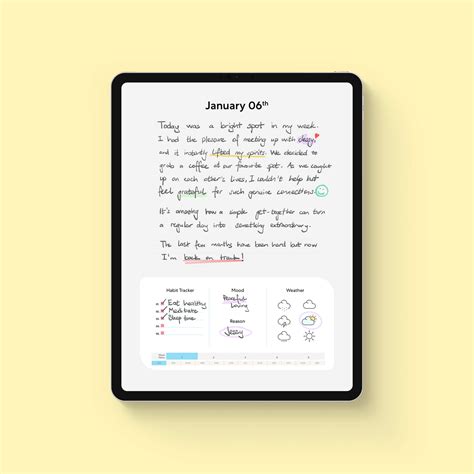 January 06th
Today was a bright spot in my week.
I had the pleasure of meeting up with Jessy,
and it instantly lifted my spirits. We decided to
grab a coffee at our favourite spot. As we caught
up on each other's lives, I couldn't help but
feel grateful for such genuine connections.
It's amazing how a simple get-together can turn
a regular day into something extraordinary.
The last few months have been hard but now
I'm back on track!
Habit Tracker
Mood
Weather
Eat healthy
Peaceful
Loving
Sleep time
Reason
Jessy